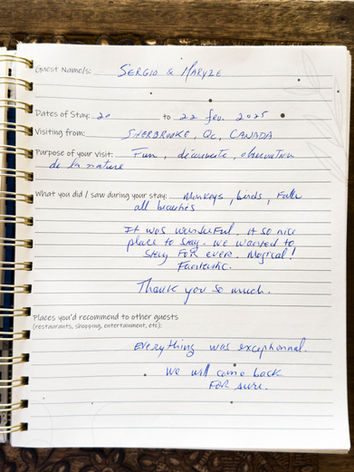 Guest Name/s: Sergio & Maryze
Dates of Stay: 20 to 22 fev. 2025
Visiting from: Sherbrooke, Qc, Canada
Purpose of your visit: Fun, découverte, observation
de la nature
What you did / saw during your stay: Monkeys, birds,
all beauties
It was wonderful. it so nice
place to stay. we wanted to
stay for ever. Magical!
Fantastic.
Thank you so much.
Places you'd recommend to other guests
(restaurants, shopping, entertainment, etc):
Everything was exceptionnal.
We will come back
for sure.